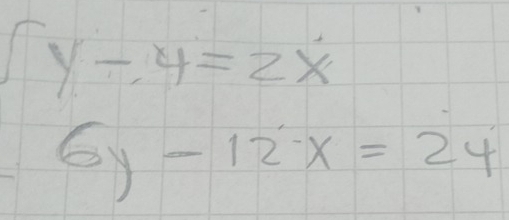 y - 4 = 2x
6y - 12x = 24